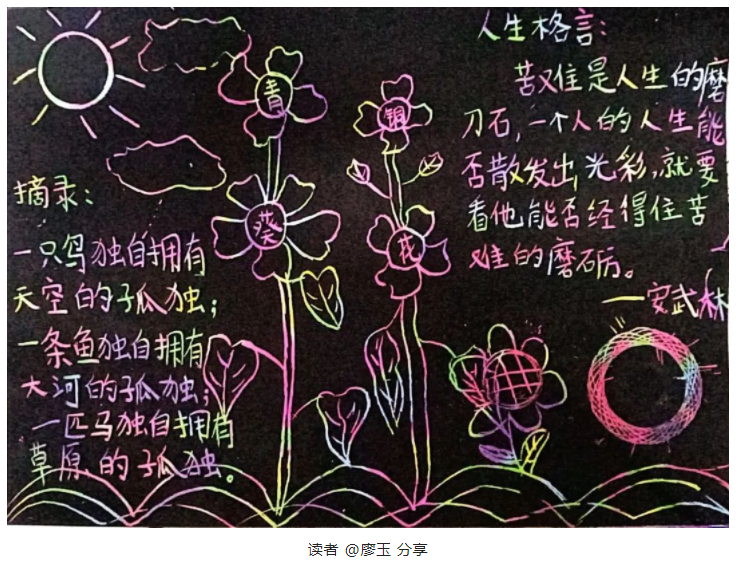 青
铜
葵
花
摘录：
一只鸟独自拥有
天空的孤独；
一条鱼独自拥有
大河的孤独；
一匹马独自拥有
草原的孤独。
人生格言：
苦难是人生的磨
刀石，一个人的人生能
否散发出光彩，就要
看他能否经得住苦
难的磨砺。
——安武林
读者 @廖玉 分享